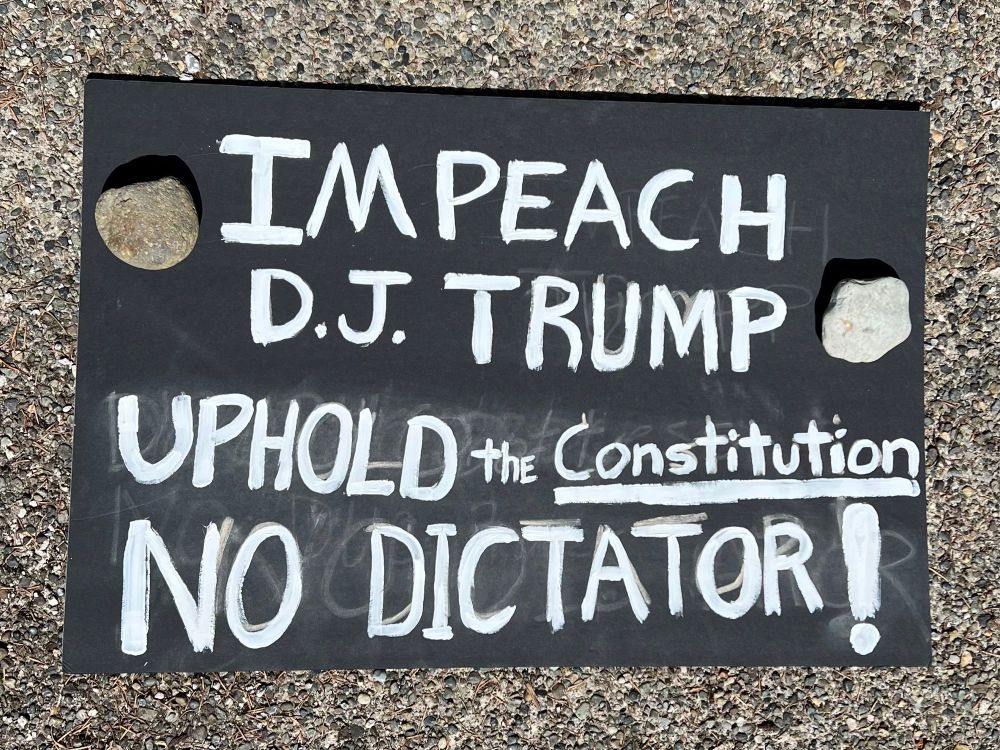 IMPEACH
D.J. TRUMP
UPHOLD the Constitution
NO DICTATOR!